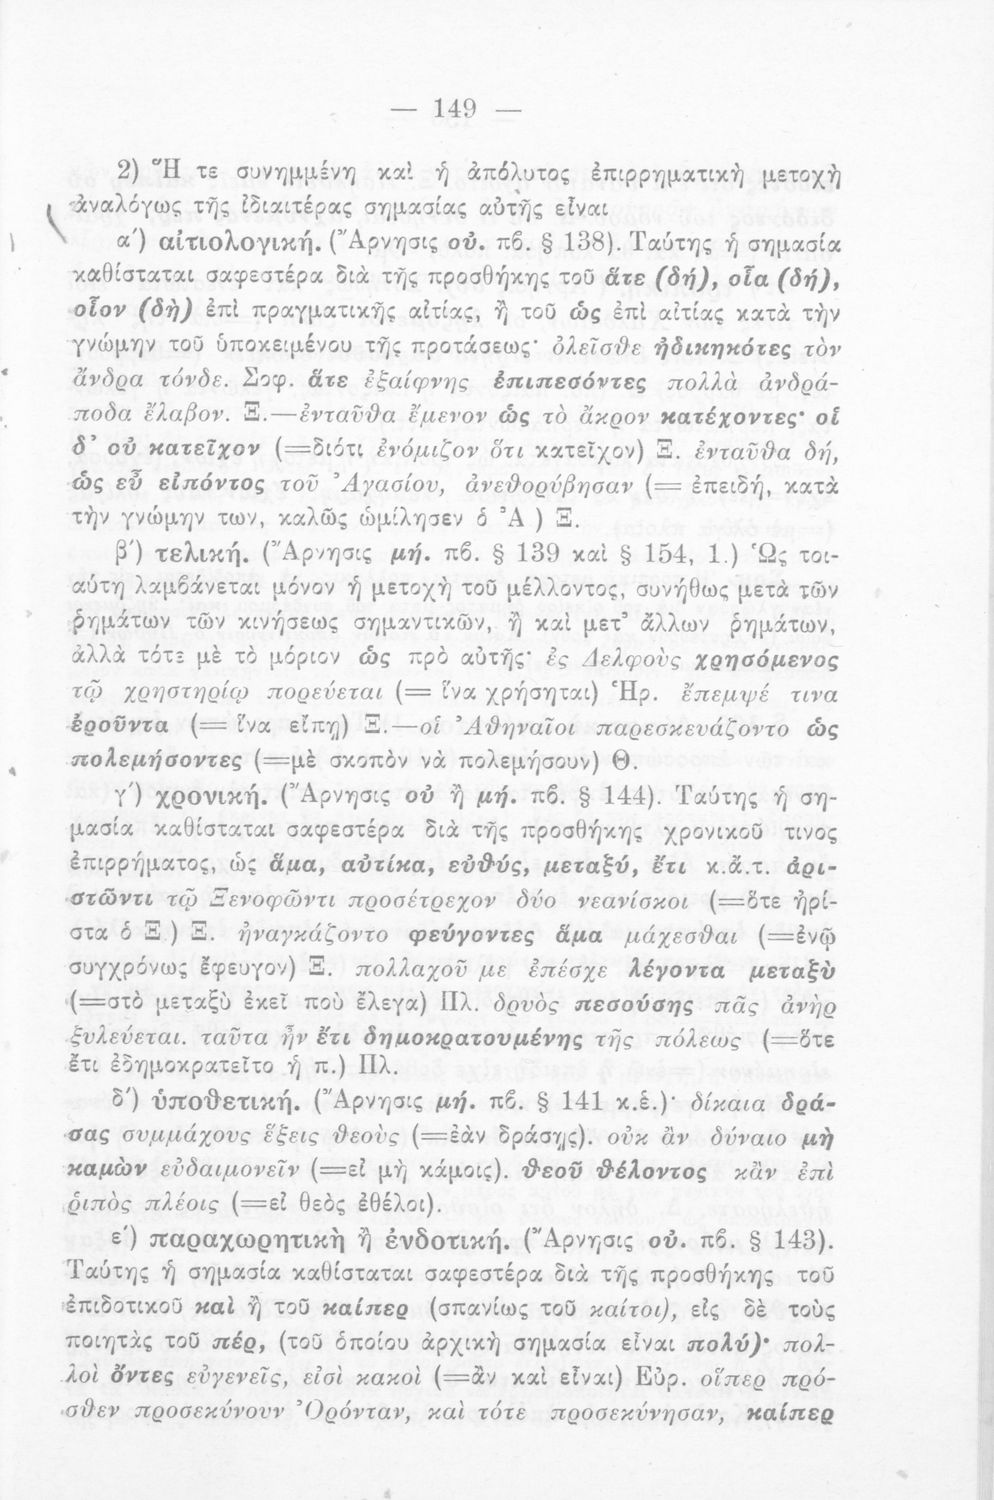 — 149 —
2) Ἥ τε συνημμένη καὶ ἡ ἀπόλυτος ἐπιρρηματικὴ μετοχὴ
ἀναλόγως τῆς ἰδιαιτέρας σημασίας αὐτῆς εἶναι
α΄) αἰτιολογική. (Ἄρνησις οὐ. πβ. § 138). Ταύτης ἡ σημασία
καθίσταται σαφεστέρα διὰ τῆς προσθήκης τοῦ ἅτε (δή), οἷα (δή),
οἷον (δὴ) ἐπὶ πραγματικῆς αἰτίας, ἢ τοῦ ὡς ἐπὶ αἰτίας κατὰ τὴν
γνώμην τοῦ ὑποκειμένου τῆς προτάσεως· ὀλεῖσθε ἠδικηκότες τὸν
ἄνδρα τόνδε. Σοφ. ἅτε ἐξαίφνης ἐπιπεσόντες πολλὰ ἀνδρά-
ποδα ἔλαβον. Ξ.—ἐνταῦθα ἔμενον ὡς τὸ ἄκρον κατέχοντες· οἱ
δ᾽ οὐ κατεῖχον (=διότι ἐνόμιζον ὅτι κατεῖχον) Ξ. ἐνταῦθα δή,
ὡς εὖ εἰπόντος τοῦ Ἀγασίου, ἀνεθορύβησαν (= ἐπειδή, κατὰ
τὴν γνώμην των, καλῶς ὡμίλησεν ὁ Ἀ ) Ξ.
β΄) τελική. (Ἄρνησις μή. πβ. § 139 καὶ § 154, 1.) Ὡς τοι-
αύτη λαμβάνεται μόνον ἡ μετοχὴ τοῦ μέλλοντος, συνήθως μετὰ τῶν
ῥημάτων τῶν κινήσεως σημαντικῶν, ἢ καὶ μετ᾽ ἄλλων ῥημάτων,
ἀλλὰ τότε μὲ τὸ μόριον ὡς πρὸ αὐτῆς· ἐς Δελφοὺς χρησόμενος
τῷ χρηστηρίῳ πορεύεται (= ἵνα χρήσηται) Ἡρ. ἔπεμψέ τινα
ἐροῦντα (= ἵνα εἴπῃ) Ξ.—οἱ Ἀθηναῖοι παρεσκευάζοντο ὡς
πολεμήσοντες (=μὲ σκοπὸν νὰ πολεμήσουν) Θ.
γ΄) χρονική. (Ἄρνησις οὐ ἢ μή. πβ. § 144). Ταύτης ἡ ση-
μασία καθίσταται σαφεστέρα διὰ τῆς προσθήκης χρονικοῦ τινος
ἐπιρρήματος, ὡς ἅμα, αὐτίκα, εὐθύς, μεταξύ, ἔτι κ.ἄ.τ. ἀρι-
στῶντι τῷ Ξενοφῶντι προσέτρεχον δύο νεανίσκοι (=ὅτε ἠρί-
στα ὁ Ξ ) Ξ. ἠναγκάζοντο φεύγοντες ἅμα μάχεσθαι (=ἐνῷ
συγχρόνως ἔφευγον) Ξ. πολλαχοῦ με ἐπέσχε λέγοντα μεταξὺ
(=στὸ μεταξὺ ἐκεῖ ποὺ ἔλεγα) Πλ. δρυὸς πεσούσης πᾶς ἀνὴρ
ξυλεύεται. ταῦτα ἦν ἔτι δημοκρατουμένης τῆς πόλεως (=ὅτε
ἔτι ἐδημοκρατεῖτο ἡ π.) Πλ.
δ΄) ὑποθετική. (Ἄρνησις μή. πβ. § 141 κ.ἑ.)· δίκαια δρά-
σας συμμάχους ἕξεις θεοὺς (=ἐὰν δράσῃς). οὐκ ἂν δύναιο μὴ
καμὼν εὐδαιμονεῖν (=εἰ μὴ κάμοις). θεοῦ θέλοντος κἂν ἐπὶ
ῥιπὸς πλέοις (=εἰ θεὸς ἐθέλοι).
ε΄) παραχωρητικὴ ἢ ἐνδοτική. (Ἄρνησις οὐ. πβ. § 143).
Ταύτης ἡ σημασία καθίσταται σαφεστέρα διὰ τῆς προσθήκης τοῦ
ἐπιδοτικοῦ καὶ ἢ τοῦ καίπερ (σπανίως τοῦ καίτοι), εἰς δὲ τοὺς
ποιητὰς τοῦ πέρ, (τοῦ ὁποίου ἀρχικὴ σημασία εἶναι πολύ)· πολ-
λοὶ ὄντες εὐγενεῖς, εἰσὶ κακοὶ (=ἂν καὶ εἶναι) Εὐρ. οἵπερ πρό-
σθεν προσεκύνουν Ὀρόνταν, καὶ τότε προσεκύνησαν, καίπερ